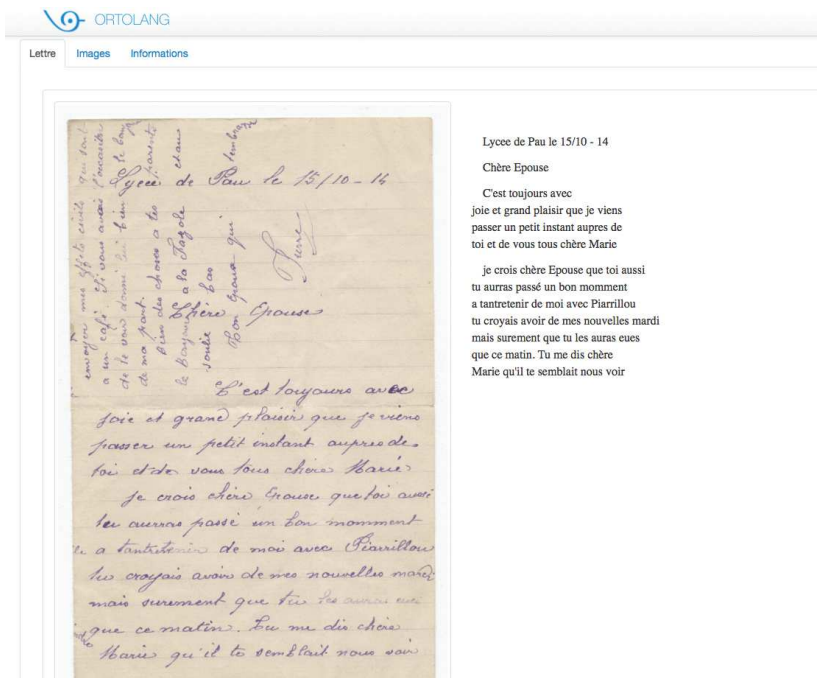 ORTOLANG
Lettre Images Informations
Lycee de Pau le 15/10 - 14
Chère Epouse
C'est toujours avec
joie et grand plaisir que je viens
passer un petit instant aupres de
toi et de vous tous chère Marie
je crois chère Epouse que toi aussi
tu aurras passé un bon momment
a tantretenir de moi avec Piarrillou
tu croyais avoir de mes nouvelles mardi
mais surement que tu les auras eues
que ce matin. Tu me dis chère
Marie qu'il te semblait nous voir
envoyer mes effets civils qui sont
a un café. Si vous avais l'occasion
de le voir donne lui bien le
de ma part.
Bien des choses a tes parents
le bonjour a la
Ton Epoux qui
Pierre
Lycee de Pau le 15/10 - 14
Chère Epouse
C'est toujours avec
joie et grand plaisir que je viens
passer un petit instant aupres de
toi et de vous tous chère Marie
je crois chère Epouse que toi aussi
tu aurras passé un bon momment
a tantretenir de moi avec Piarrillou
tu croyais avoir de mes nouvelles mardi
mais surement que tu les auras eues
que ce matin. Tu me dis chère
Marie qu'il te semblait nous voir